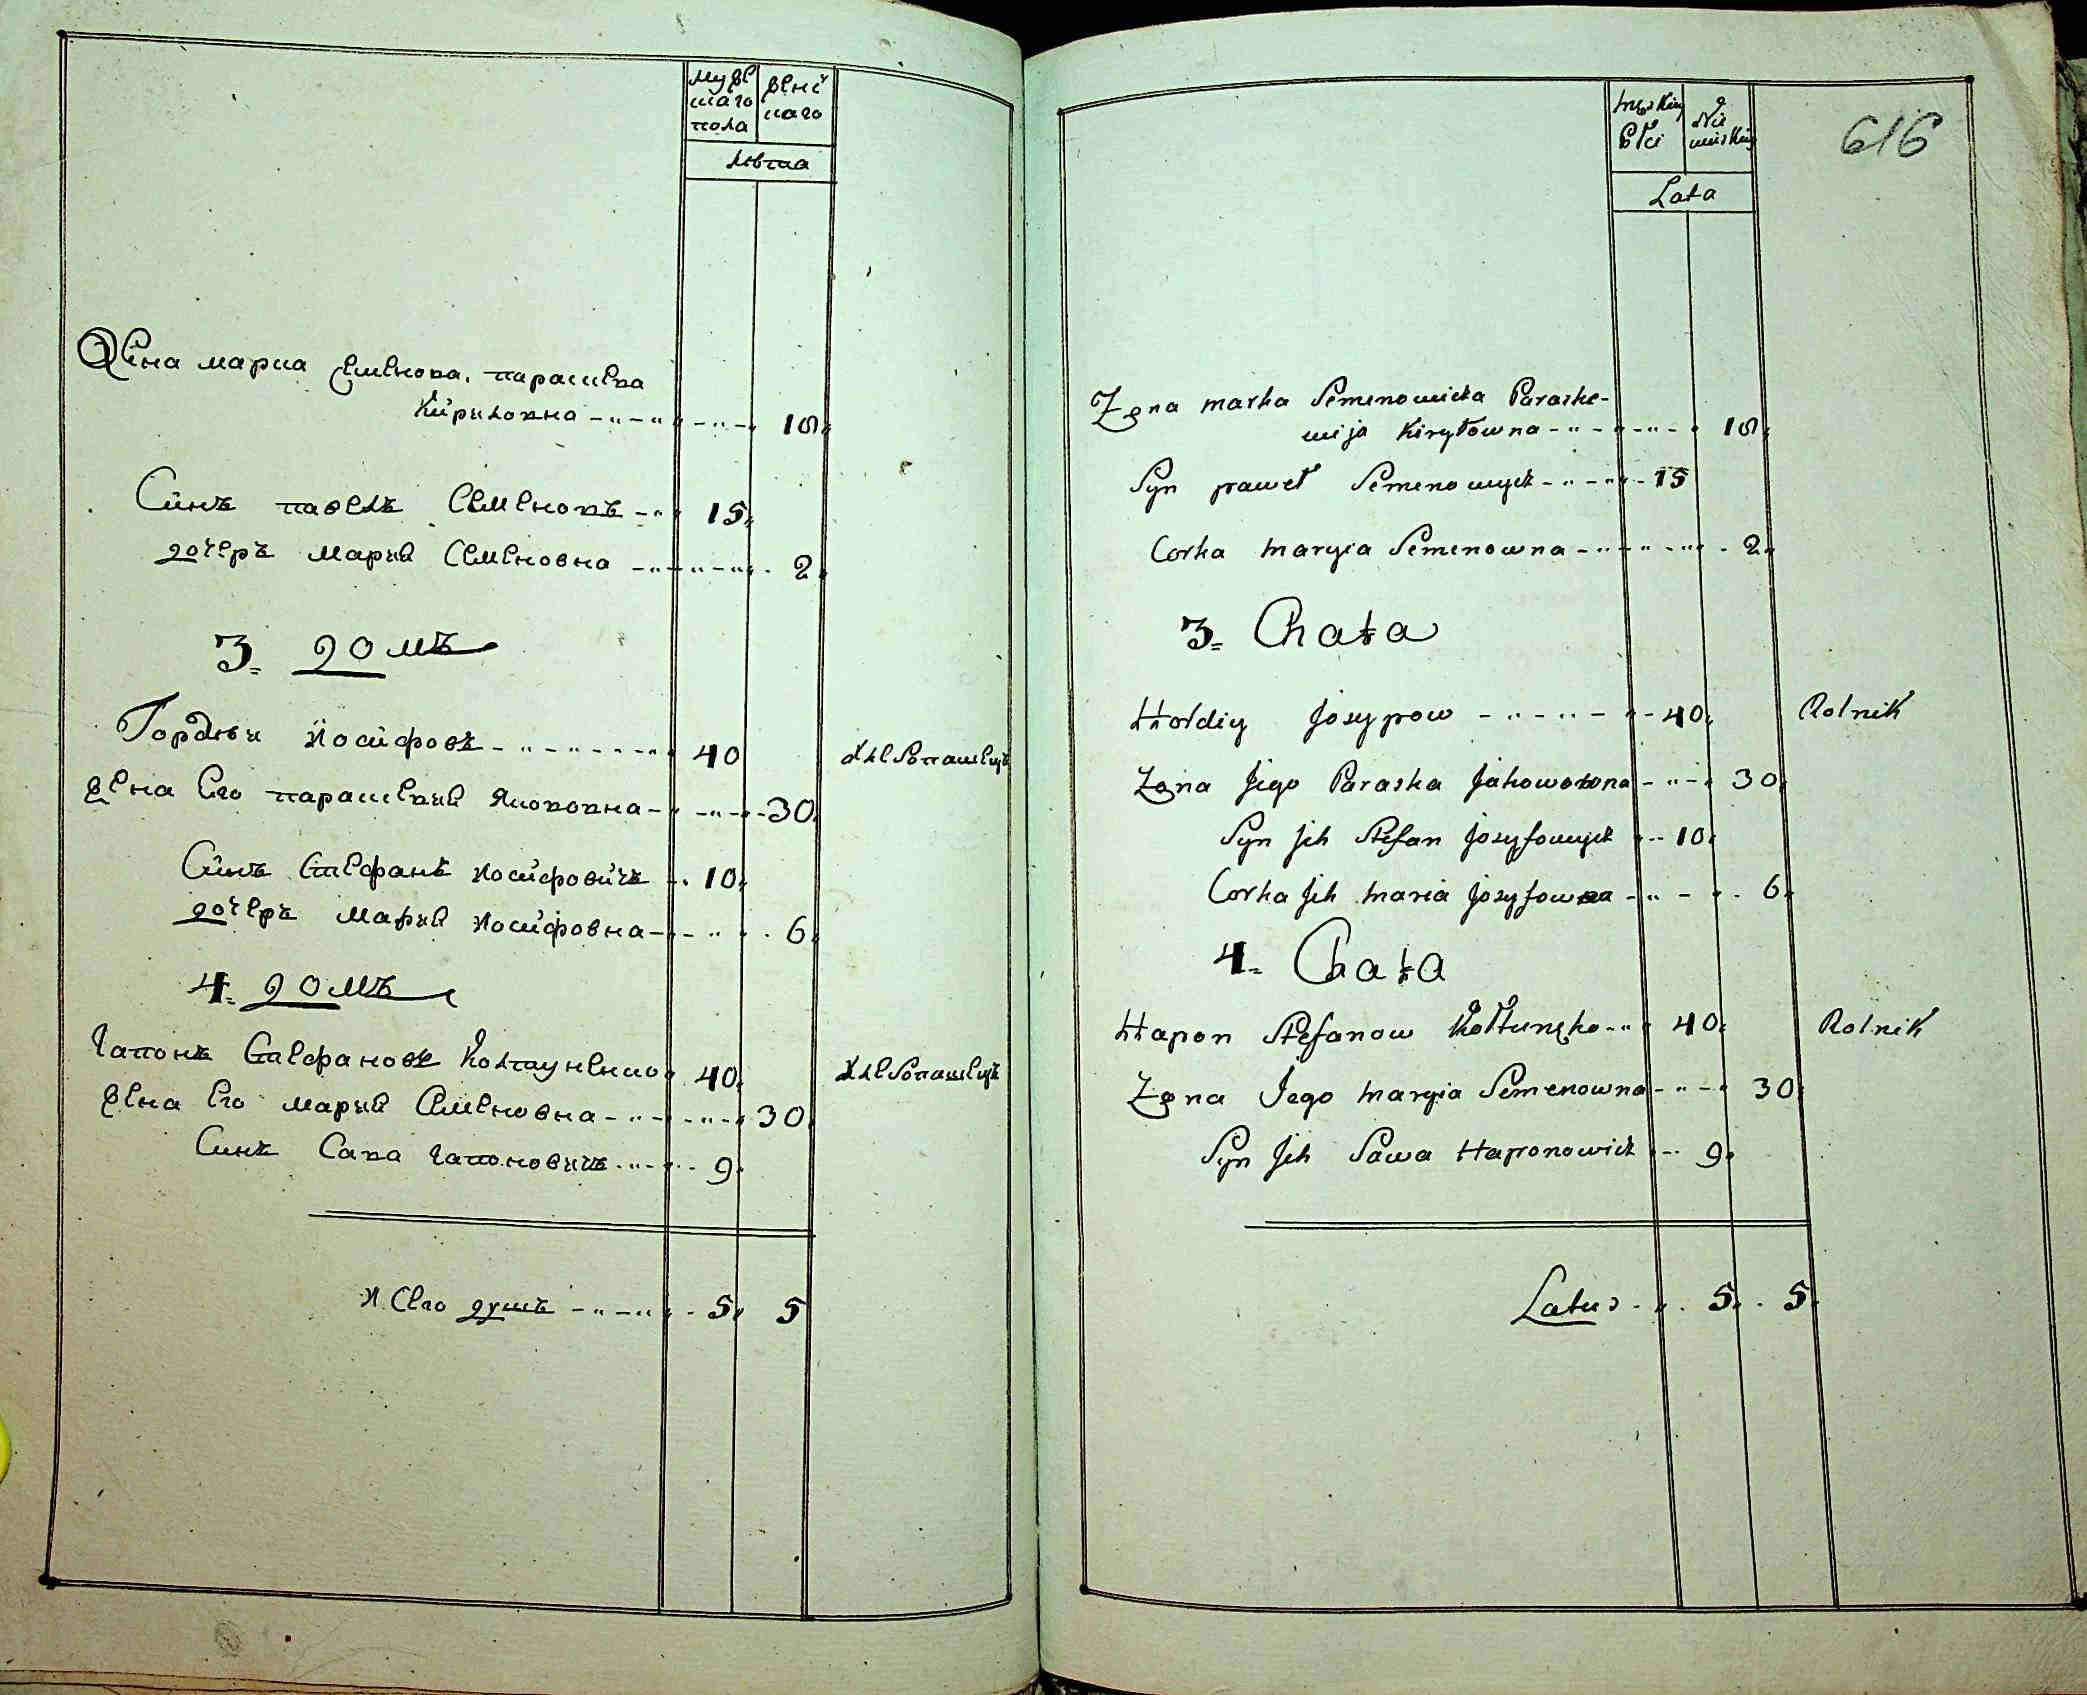 Муже
скаго
пола
женс
каго
Лѣта
Жена мариа Семенова, параскева
Кирилокна 18
Синъ павелъ Семеновъ 15
дочерь Марыя Семеновна 2
3. домъ
Гордѣи Иосифовъ 40 Хлебопашецъ
жена Его параскевия Яковокна 30
Синъ Стефанъ Иосифовичъ 10
дочерь Марыя Иосифовна 6
4. домъ
Гапонъ Стефановъ Колтуненко 40 Хлебопашецъ
жена Его марыя Семеновна 30
Синъ Сава Гапоновичъ 9
И Сего душъ 5 5
616
męskiej
płci
Nie
wieskiej
Lata
Zona marka Semenowicka Paraske-
wija Kiryłowna 18
Syn paweł Semenowycz 15
Corka maryia Semenowna 2
3. Chata
Hordiy Josypow 40 Rolnik
Zona Jego Paraska Jakowowna 30
Syn Jch Stefan Josyfowycz 10
Corka Jch maria Josyfowna 6
4. Chata
Hapon Stefanow Kołtunęko 40 Rolnik
Zona Jego maryia Semenowna 30
Syn Jch Sawa Haponowicz 9
Latus 5 5